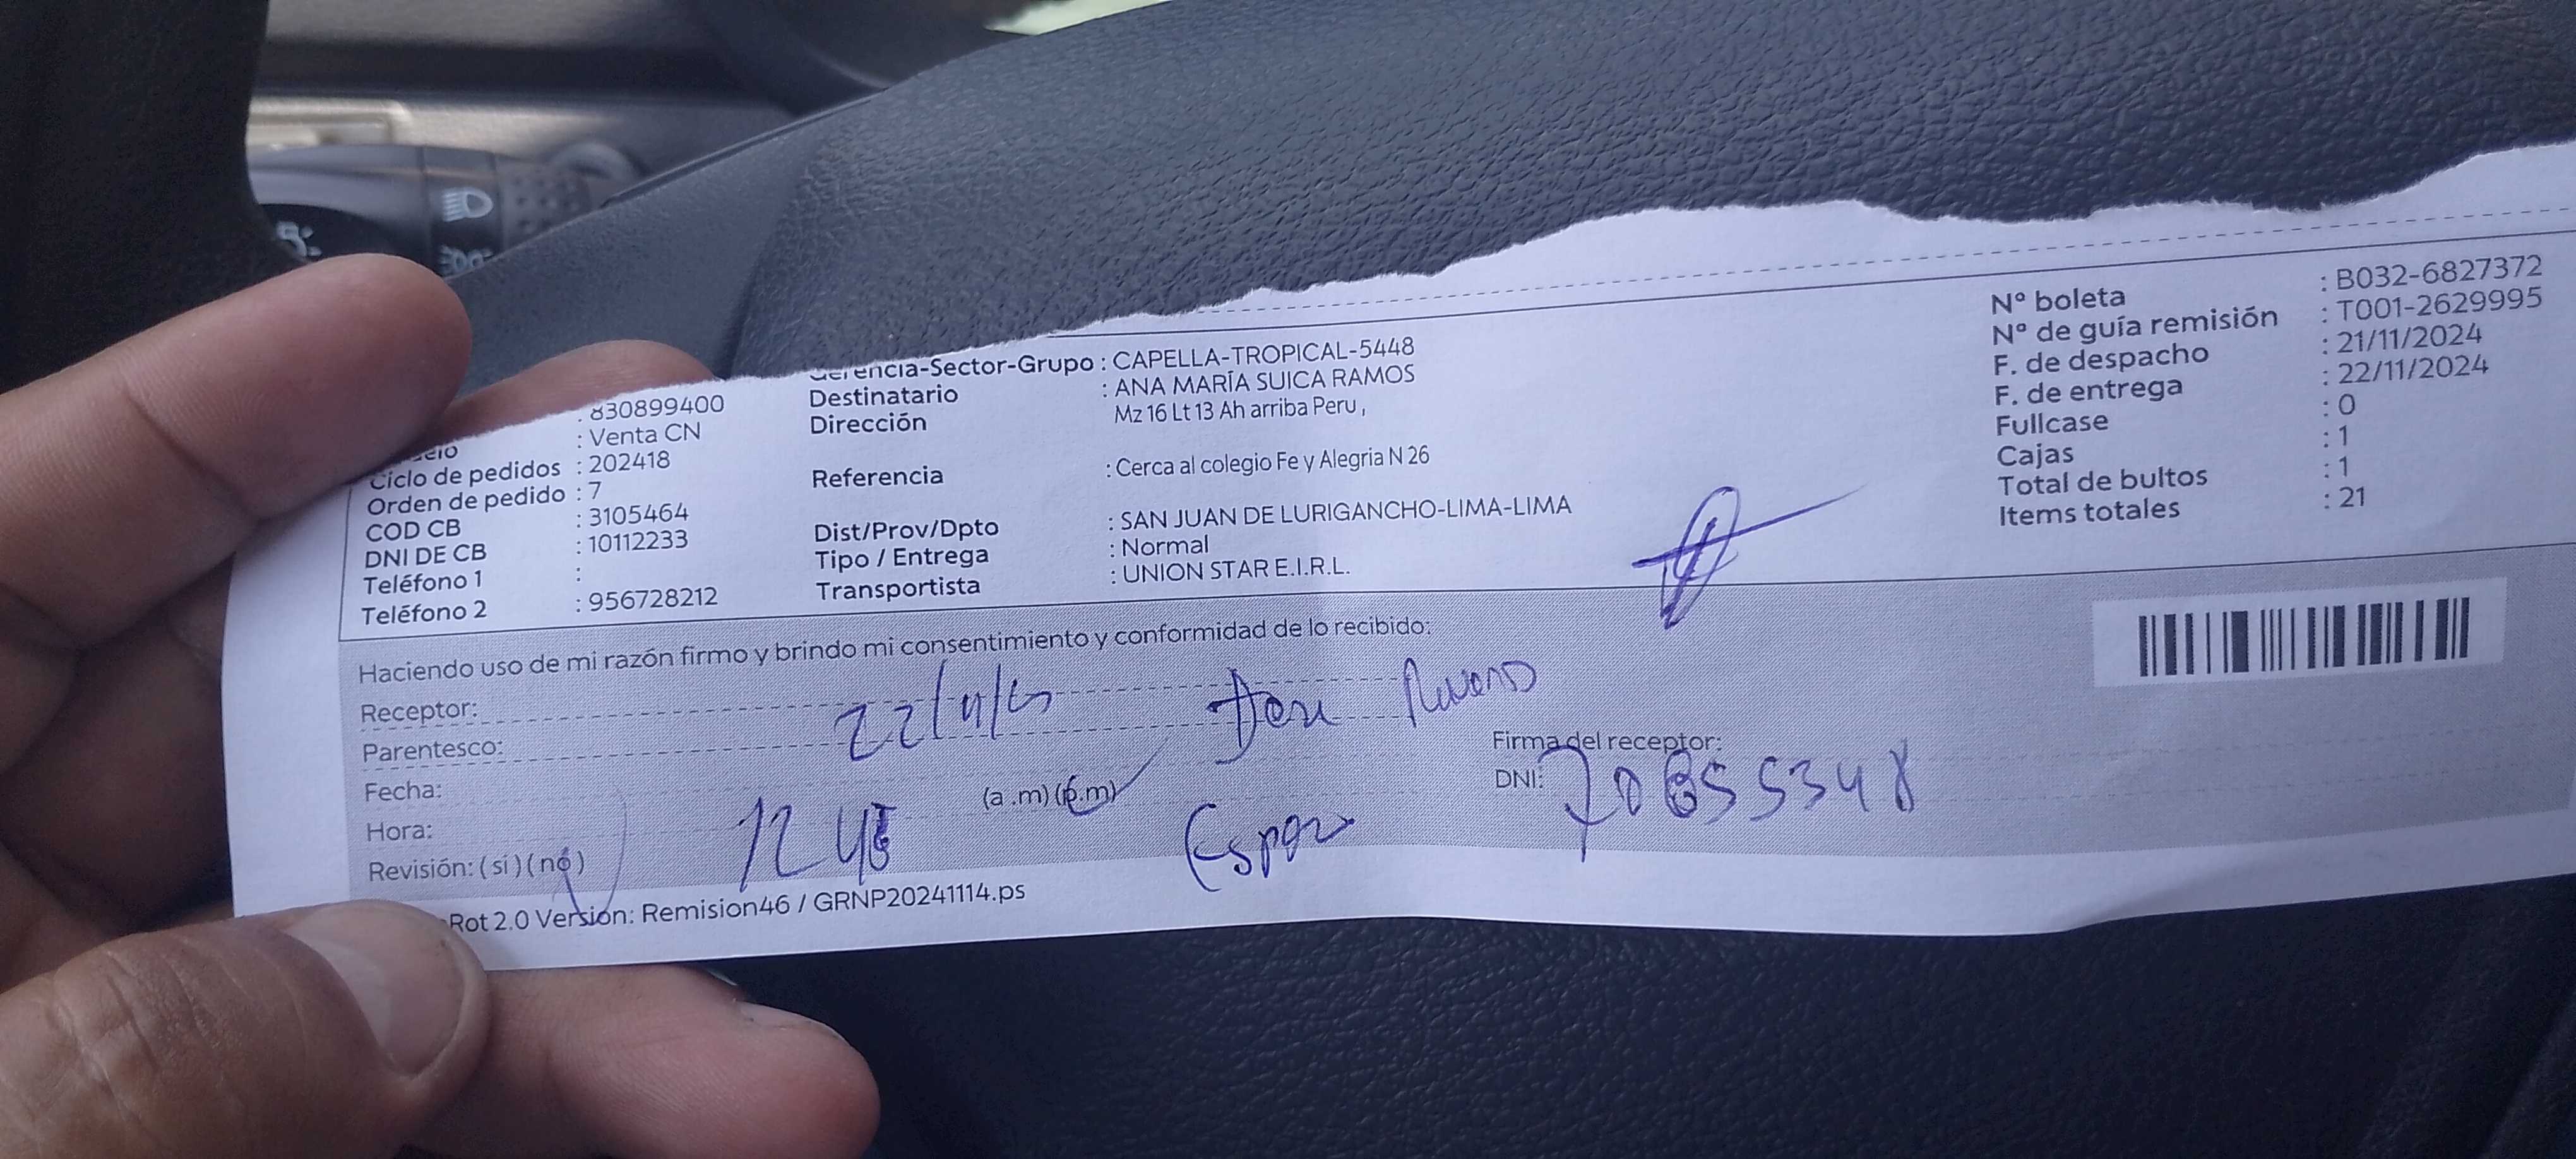 830899400
: Venta CN
Ciclo de pedidos : 202418
Orden de pedido : 7
COD CB : 3105464
DNI DE CB : 10112233
Teléfono 1 :
Teléfono 2 : 956728212
Gerencia-Sector-Grupo : CAPELLA-TROPICAL-5448
Destinatario : ANA MARÍA SUICA RAMOS
Dirección Mz 16 Lt 13 Ah arriba Peru ,
Referencia : Cerca al colegio Fe y Alegria N 26
Dist/Prov/Dpto : SAN JUAN DE LURIGANCHO-LIMA-LIMA
Tipo / Entrega : Normal
Transportista : UNION STAR E.I.R.L.
N° boleta : B032-6827372
N° de guía remisión : T001-2629995
F. de despacho : 21/11/2024
F. de entrega : 22/11/2024
Fullcase : 0
Cajas : 1
Total de bultos : 1
Items totales : 21
Haciendo uso de mi razón firmo y brindo mi consentimiento y conformidad de lo recibido:
Receptor:
Parentesco:
Fecha:
Hora: (a .m) (p.m)
Revisión: (si) (no)
Firma del receptor:
DNI:
Rot 2.0 Version: Remision46 / GRNP20241114.ps